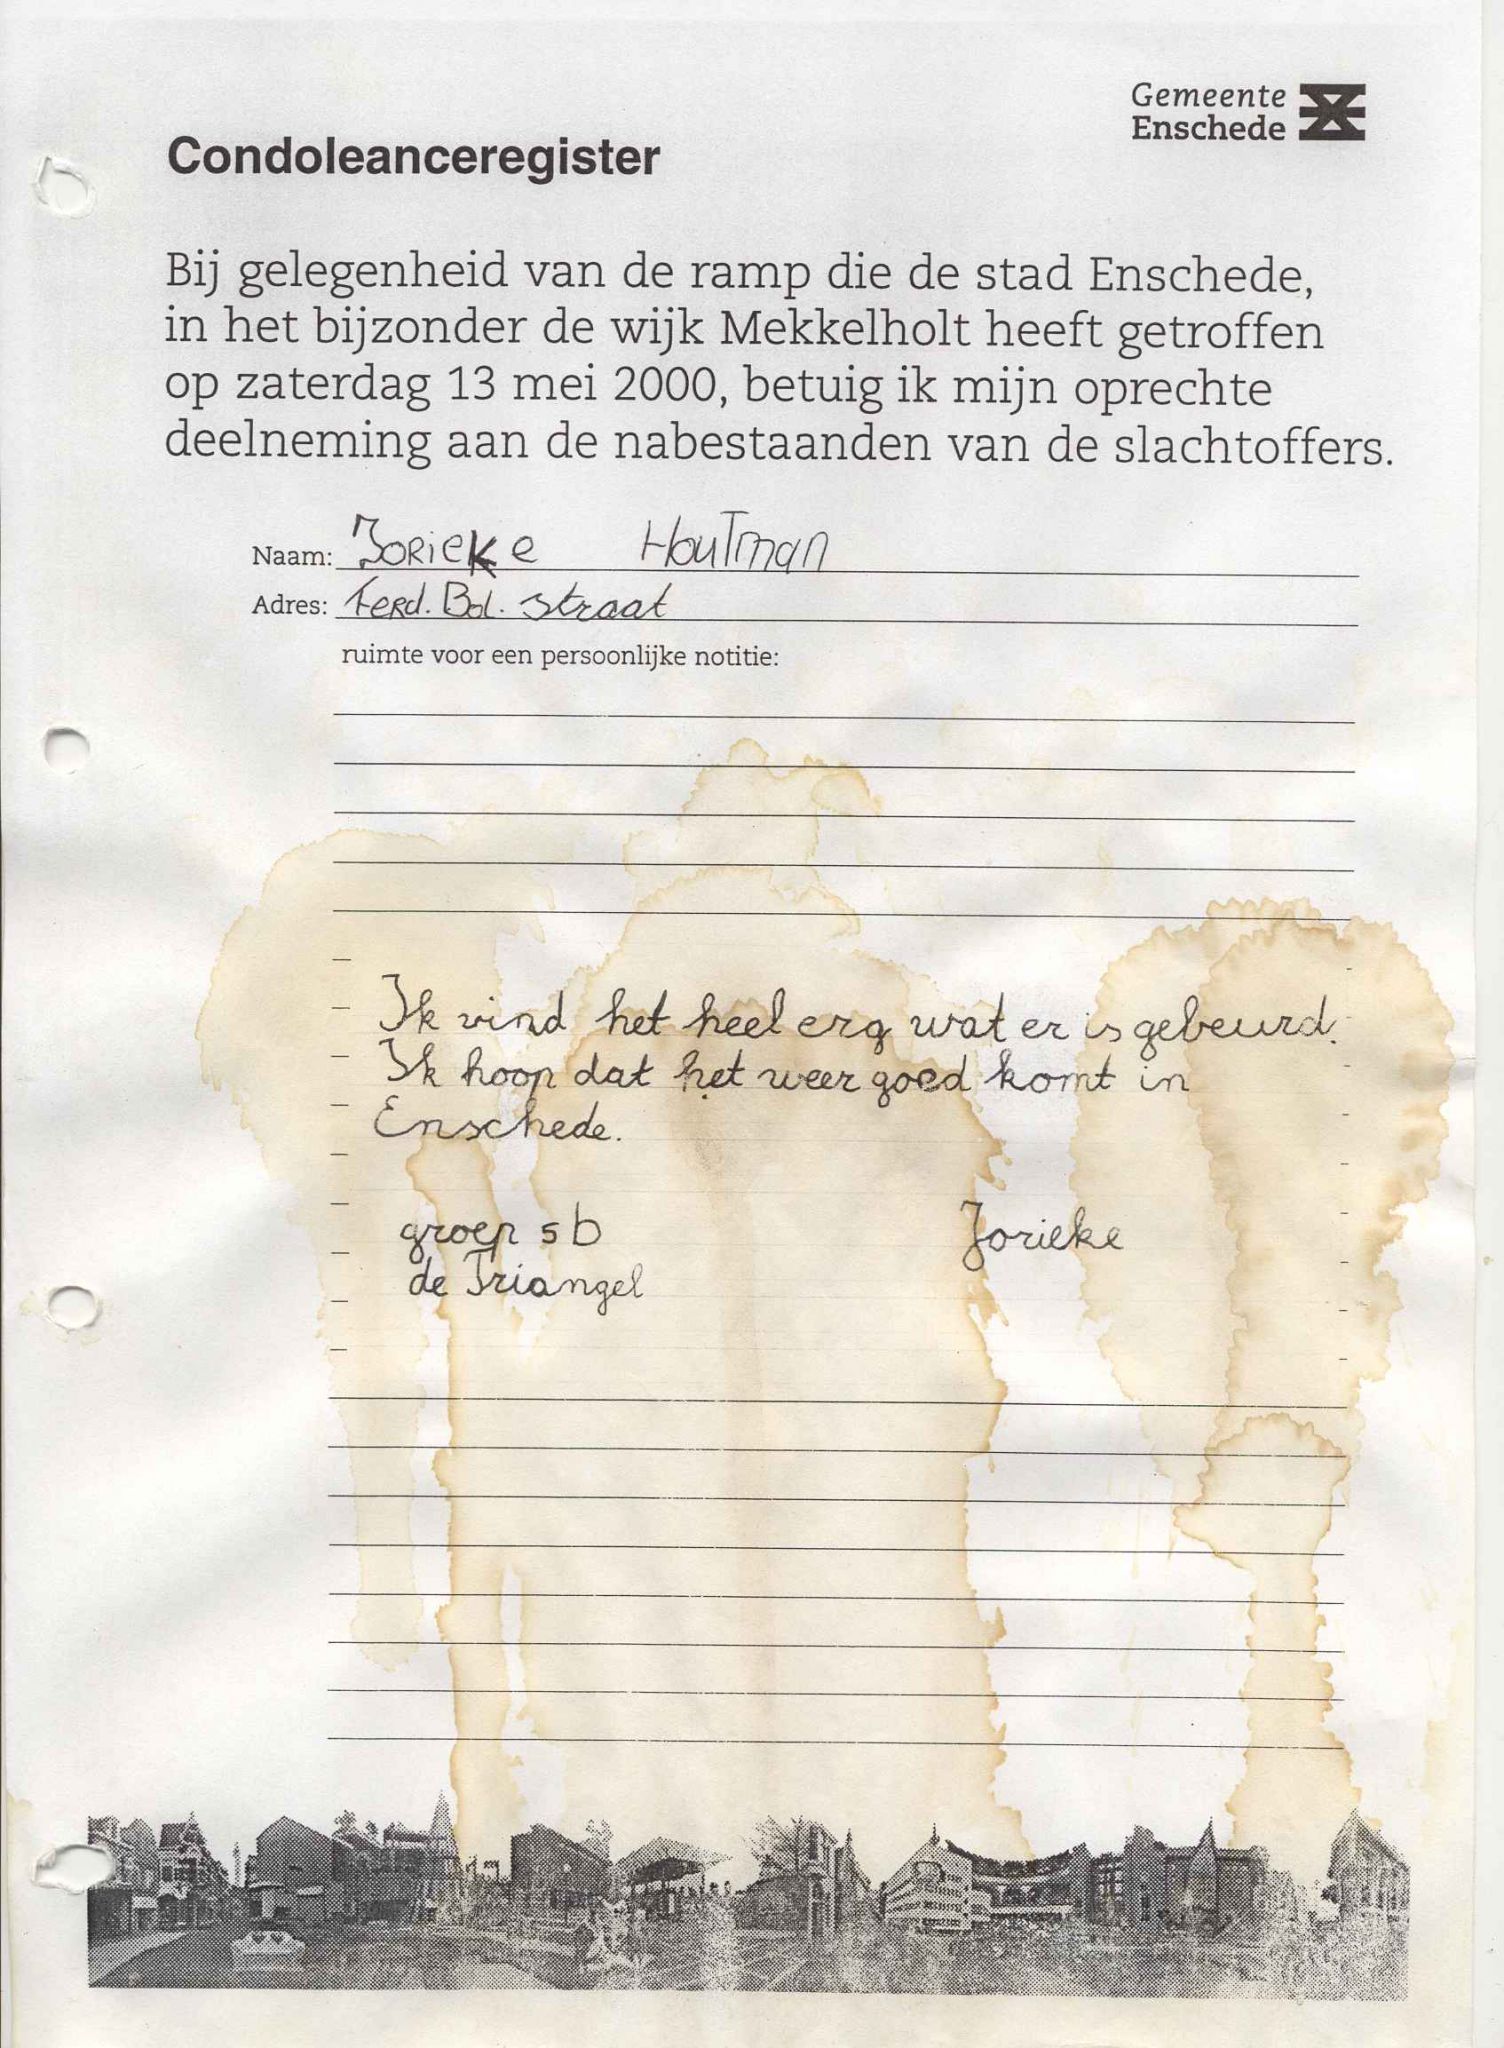 Gemeente
Enschede
Condoleanceregister
Bij gelegenheid van de ramp die de stad Enschede,
in het bijzonder de wijk Mekkelholt heeft getroffen
op zaterdag 13 mei 2000, betuig ik mijn oprechte
deelneming aan de nabestaanden van de slachtoffers.
Naam: Jorieke Houtman
Adres: Ferd. Bol. straat
ruimte voor een persoonlijke notitie:
Ik vind het heel erg wat er is gebeurd.
Ik hoop dat het weer goed komt in
Enschede.
groep 5 b Jorieke
de Triangel